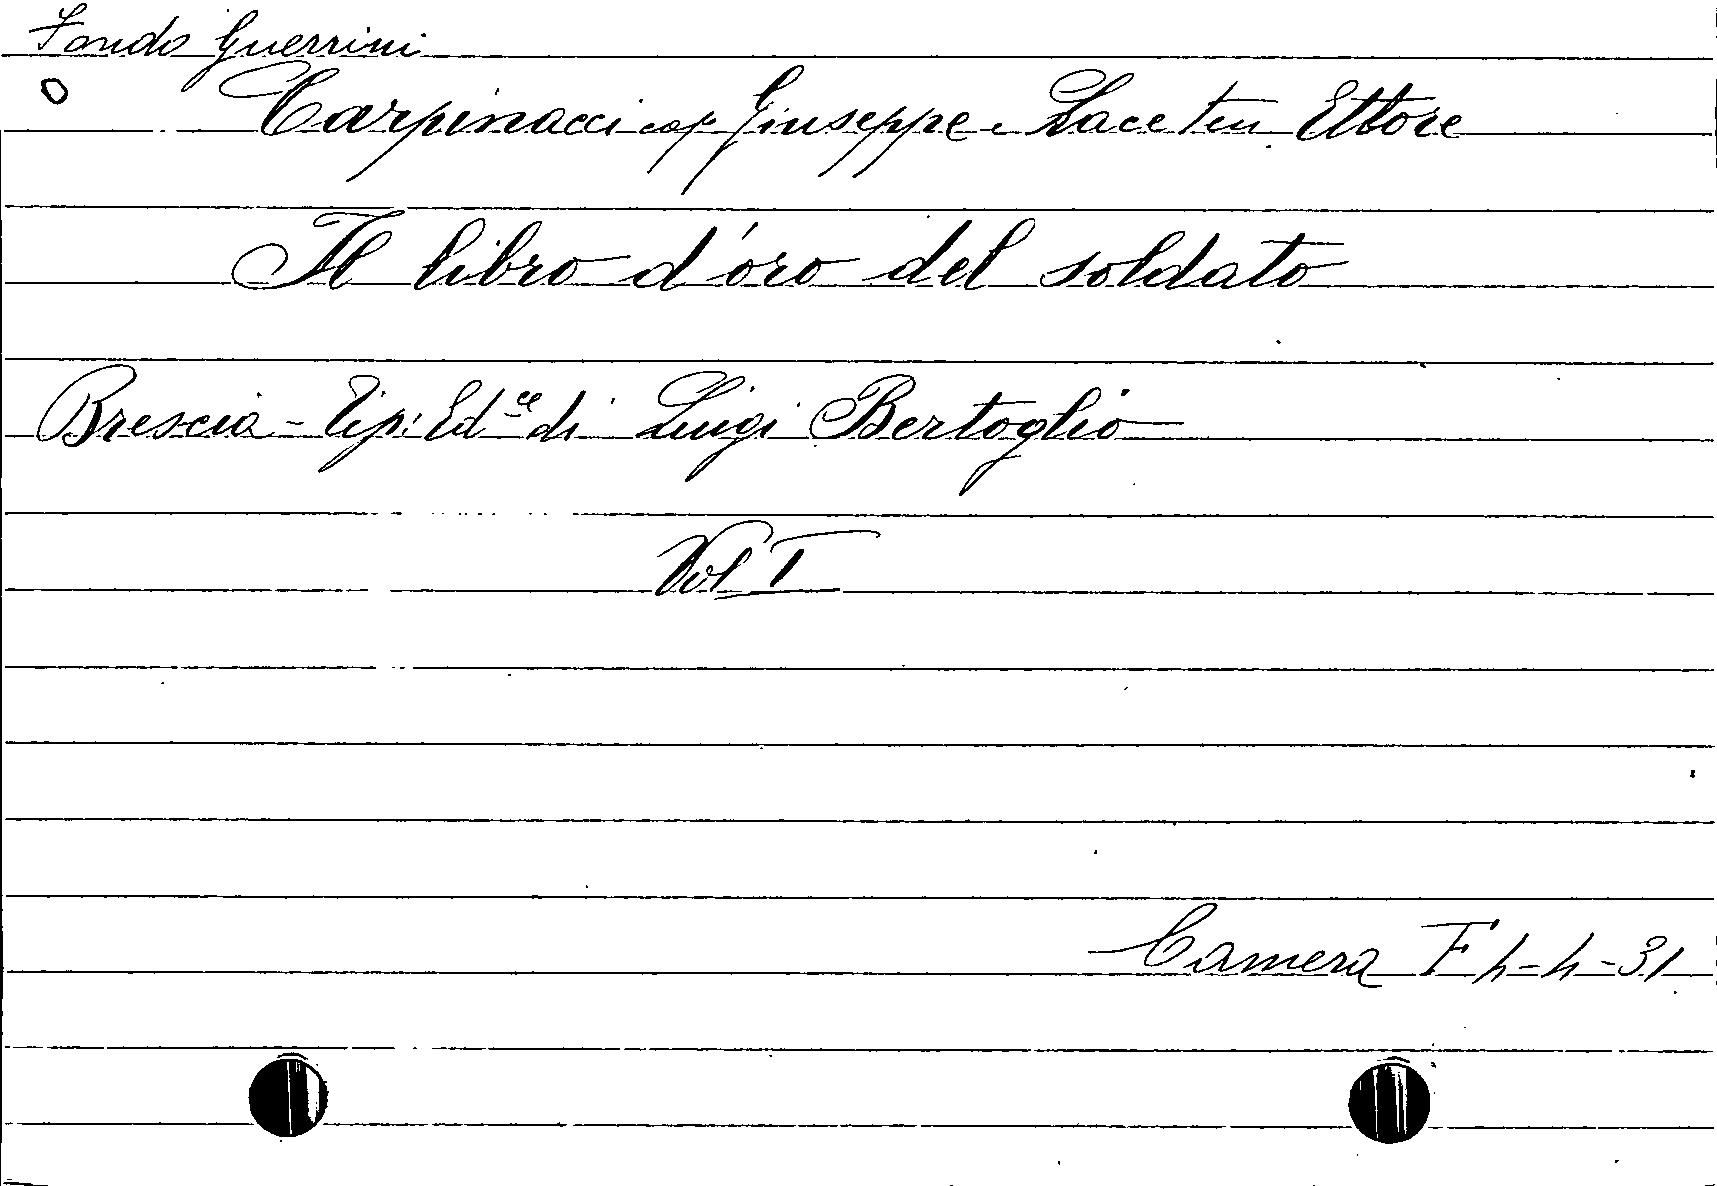 Fondo Guerrini
Carpinacci cap Giuseppe e Lace ten Ettore
Il libro d'oro del soldato
Brescia - Tip: Ed.ce di Luigi Bertoglio
Vol I
Camera F h-h-31